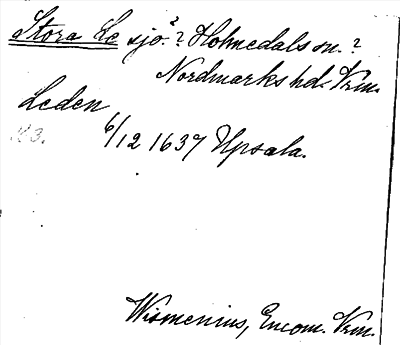 Stora Le sjö? ? Holmedals sn. ?
Nordmarks hd. Vrm.
Leden
K3.
6/12 1637 Upsala.
Wismenius, Encom. Vrm.